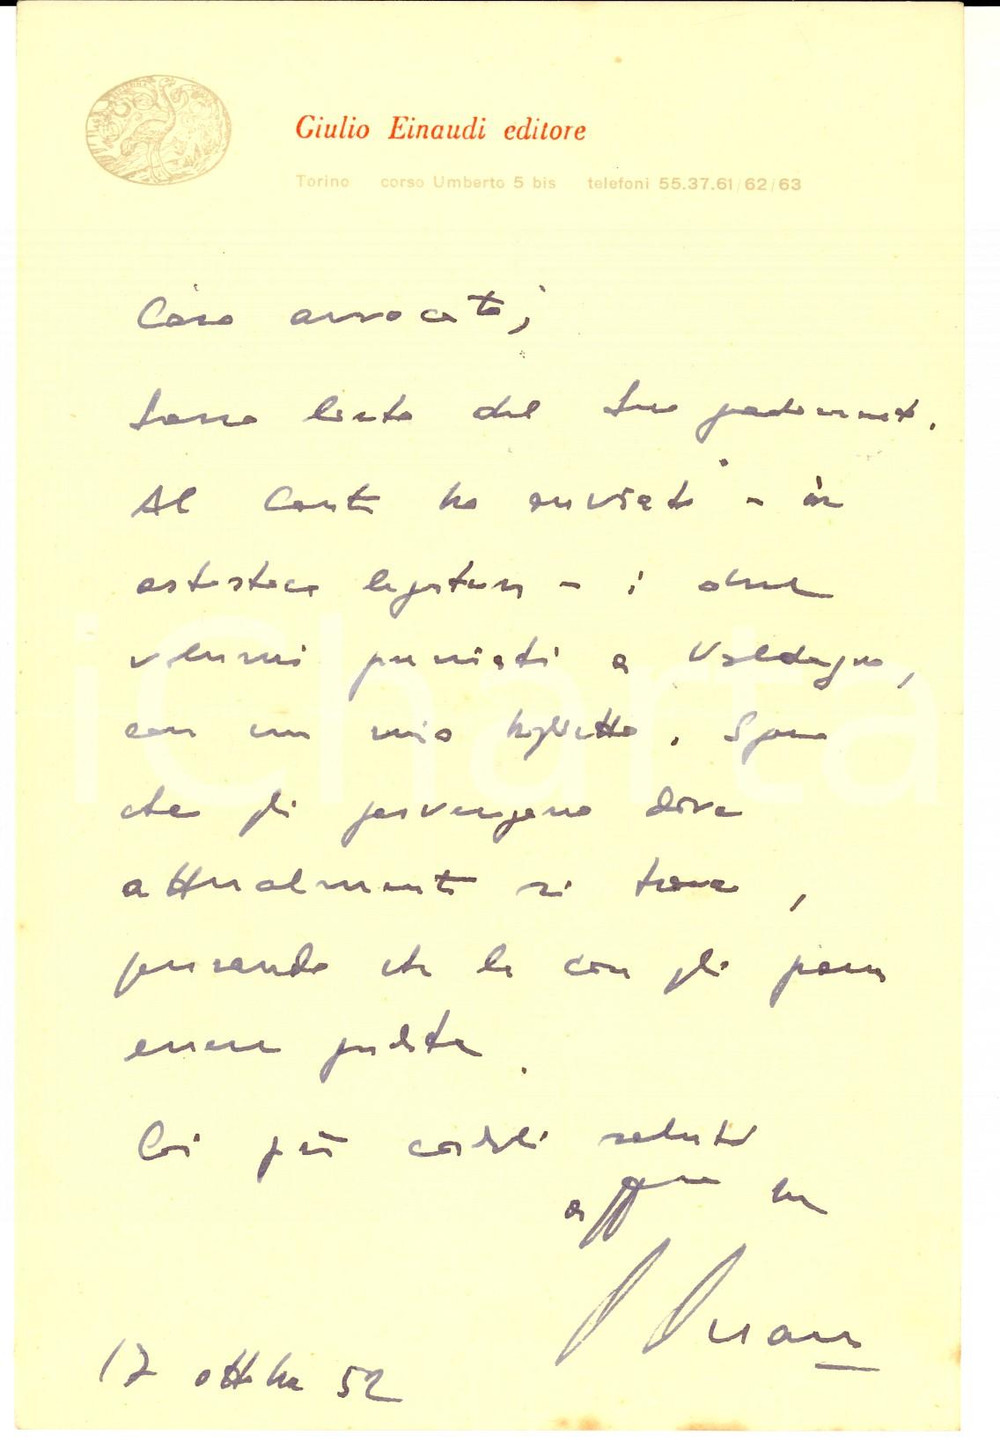 Giulio Einaudi editore
Torino corso Umberto 5 bis telefoni 55.37.61/62/63
Caro avvocato,
sono lieto del Suo
Al Conte ho inviato - in
artistica legatura - i due
volumi premiati a Valdagno,
con un mio biglietto. Spero
che gli pervengano dove
attualmente si trova,
pensando che la cosa gli possa
essere gradita.
Coi più cordiali saluti
aff.mo Suo
17 ottobre 52
iCharta